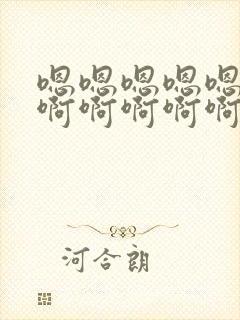 嗯嗯嗯嗯嗯
啊啊啊啊啊
河合朗